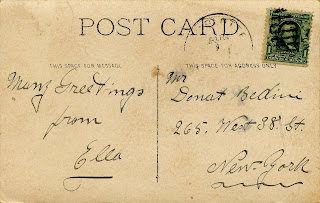 POST CARD
THIS SPACE FOR MESSAGE
THIS SPACE FOR ADDRESS ONLY
Many Greetings
from
Ella
Mr
Donat Bedini
265. West 38. St.
New-York